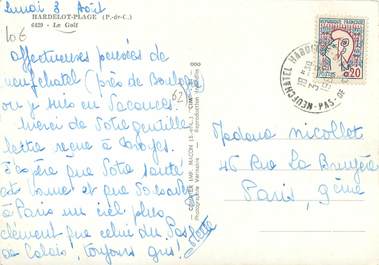 Lundi 3 Août
HARDELOT-PLAGE (P.-de-C.)
6439 - Le Golf
10€
affectueuses pensées de
neufchatel (près de Boulogne
ou je suis en vacances.
merci de votre gentille
lettre reçue à
J'espère que votre santé
est bonne et que vous avez
à Paris un ciel plus
clément que celui du Pas
de Calais, toujours gris!
62
COMBIER IMP. MACON (S.-et-L.) "CIM"
Photographie Véritable - Reproduction interdite
REPUBLIQUE FRANÇAISE
0,20
NEUFCHATEL HARDELOT
PAS-DE
Madame nicollot
46 Rue La Bruyère
Paris, 9ème